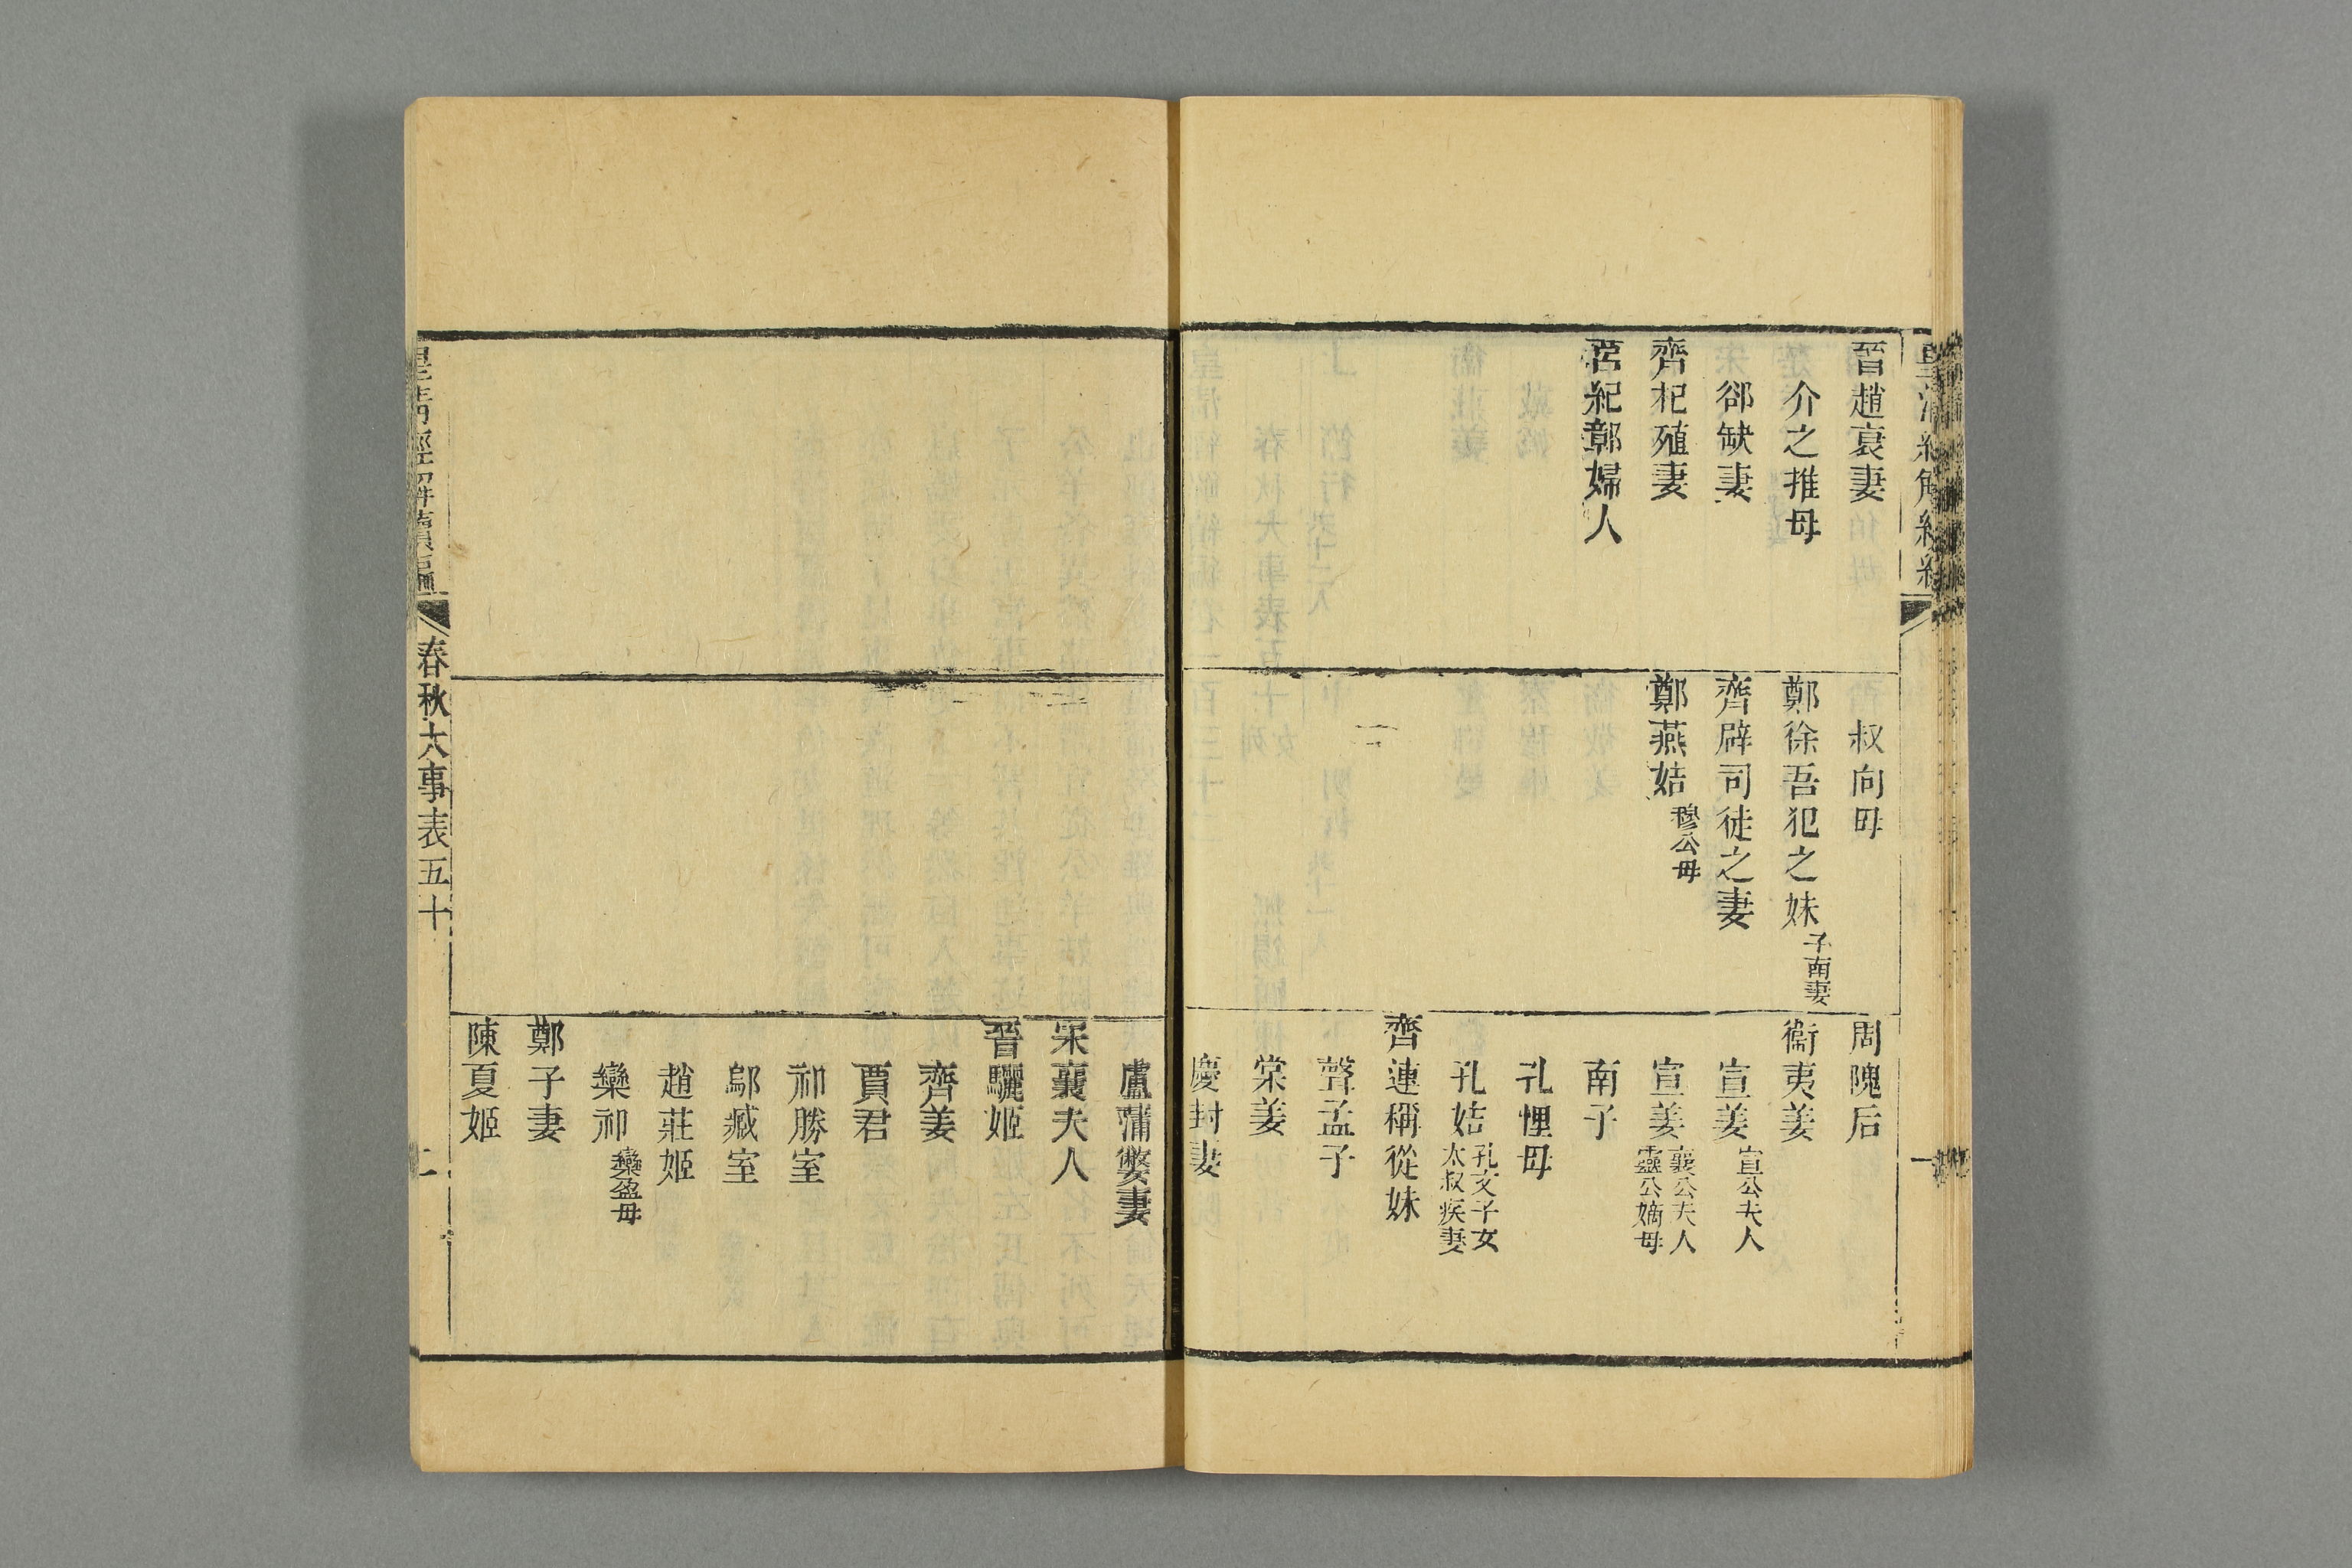 晉趙衰妻
介之推母
郤缺妻
齊杞殖妻
莒紀鄣婦人
叔向母
鄭徐吾犯之妹子南妻
齊辟司徒之妻
鄭燕姞穆公母
周隗后
衞夷姜
宣姜宣公夫人
宣姜襄公夫人靈公嫡母
南子
孔悝母
孔姞孔文子女太叔疾妻
齊連稱從妹
聲孟子
棠姜
慶封妻
盧蒲嫳妻
宋襄夫人
晉驪姬
齊姜
賈君
祁勝室
鄔臧室
趙莊姬
欒祁欒盈母
鄭子妻
陳夏姬
皇清經解續編
春秋大事表五十
二